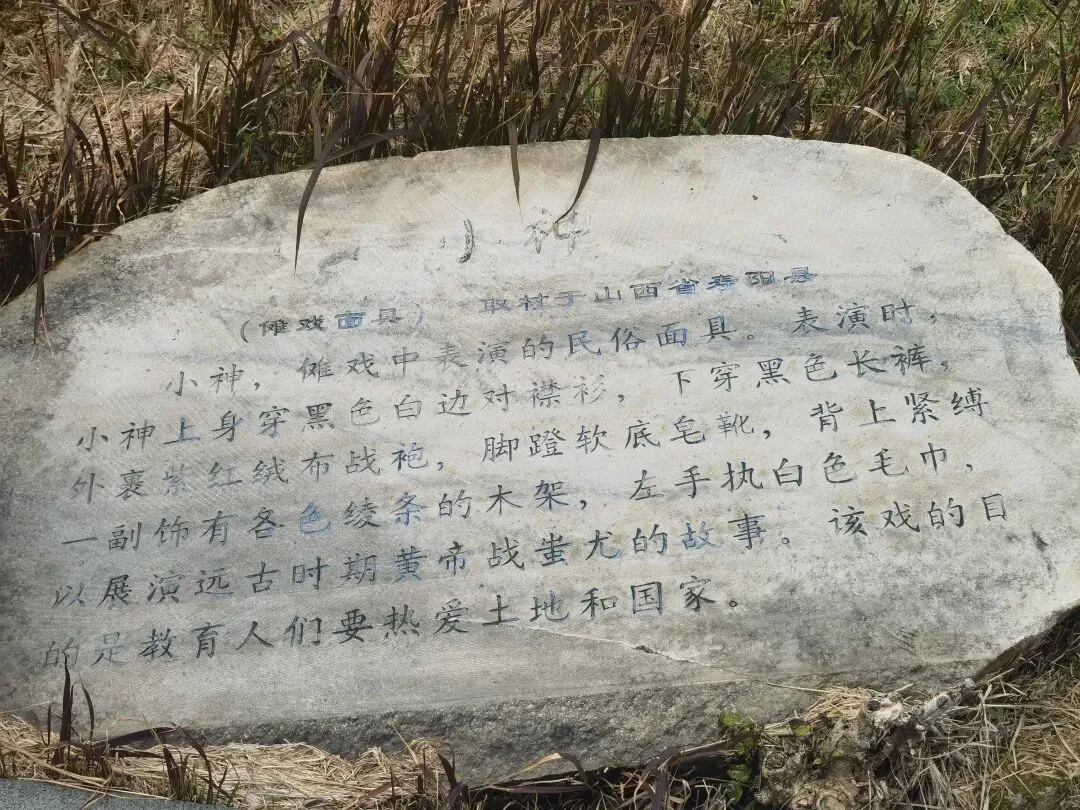 小神
（傩戏面具） 取材于山西省寿阳县
小神，傩戏中表演的民俗面具。表演时，
小神上身穿黑色白边对襟衫，下穿黑色长裤，
外裹紫红绒布战袍，脚蹬软底皂靴，背上紧缚
一副饰有各色绫条的木架，左手执白色毛巾，
以展演远古时期黄帝战蚩尤的故事。该戏的目
的是教育人们要热爱土地和国家。